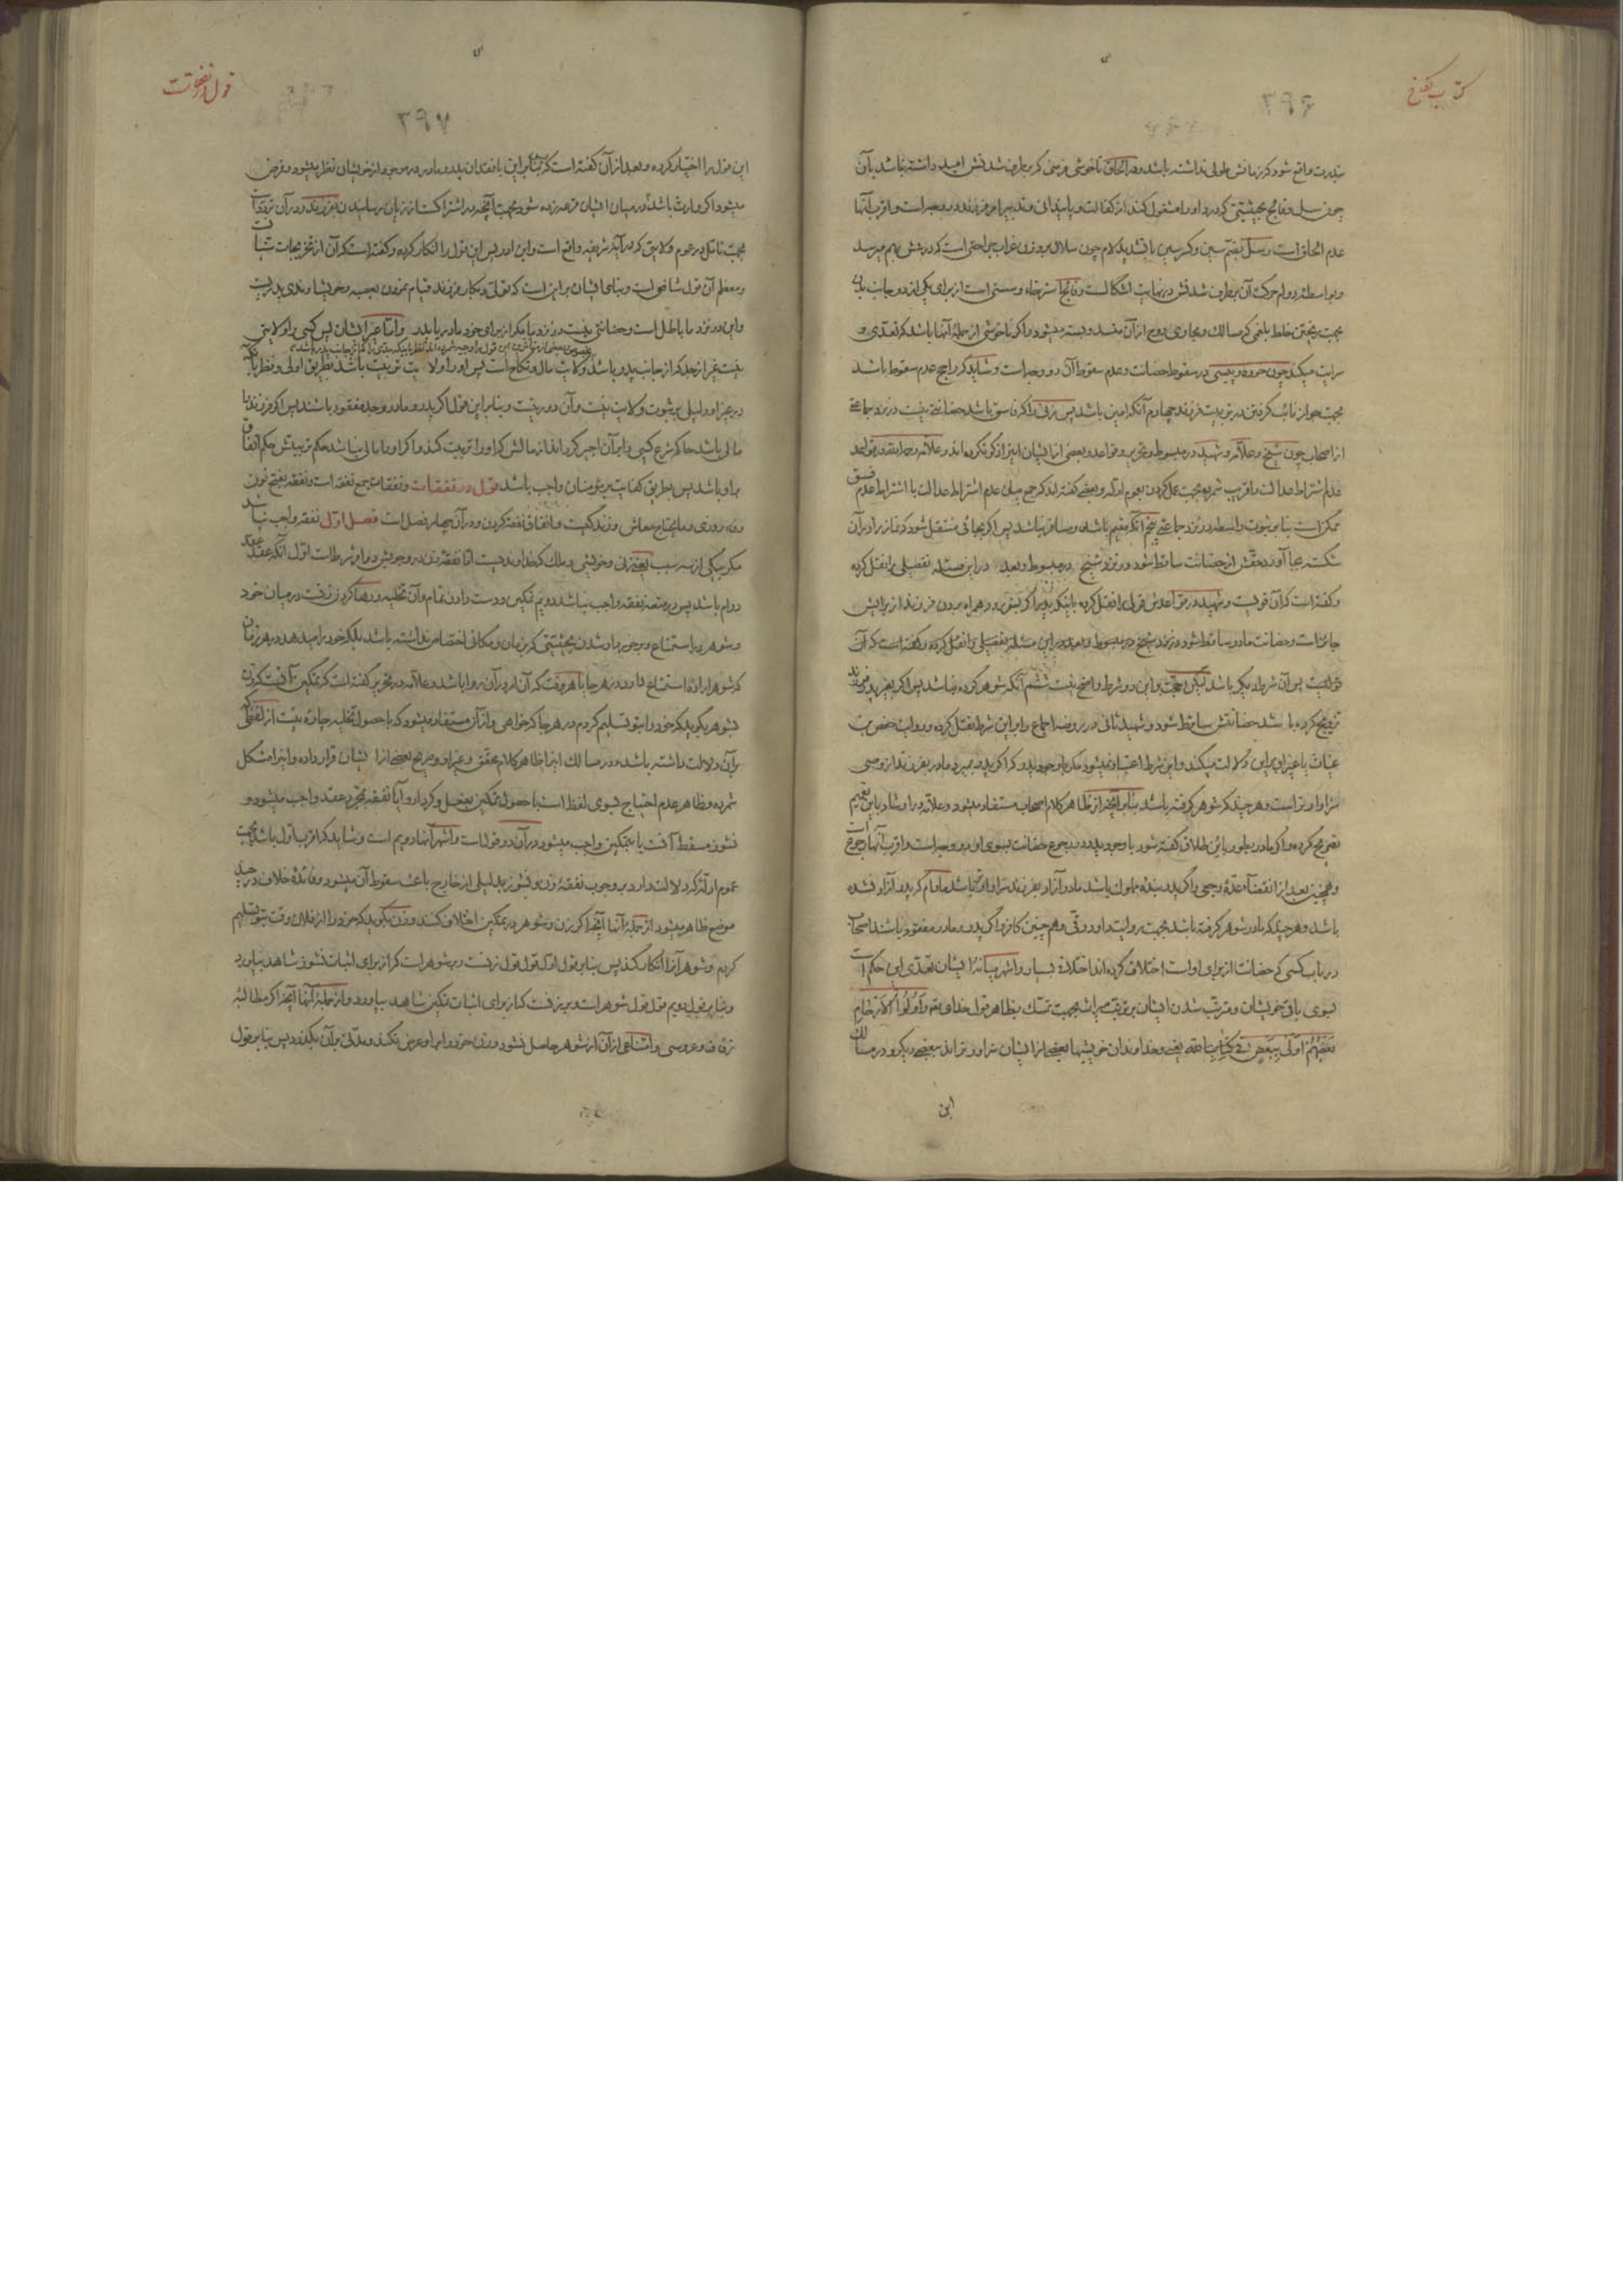 کتاب نکاح
۳۹۶
بندرت واقع شود که زمانش طولی نداشته باشد و در الحاق ناخوشی مزمنی که برطرف شدنش امید داشته نباشد بآن
چون سل و فالج بحیثیتی که درد او را مشغول کند از کفالت و تدبیر امر فرزند دو وجه است و اقرب آنها
عدم الحاق است و سل بضم سین و کسر سین با تشدید لام چون سلال بر وزن غراب جراحتی است که در شش بهم میرسد
و بواسطه دوام حرکت آن برطرف شدنش در نهایت اشکالست و فالج استرخاء و سستی است از برای یکی از دو جانب بدن
بجهت ریختن خلط بلغمی که مسالک و مجاری روح از آن منسد و بسته میشود و اگر ناخوشی از جمله آنها باشد که تعدی و
سرایت میکند چون خوره و پیسی در سقوط حضانت و عدم سقوط آن دو وجه است و شاید که راجح عدم سقوط باشد
بجهت جواز نائب گرفتن در تربیت فرزند چهارم آنکه امین باشد پس زنی را که فاسق باشد حضانتی نیست در نزد جماعتی
از اصحاب چون شیخ و علامه و شهید در مبسوط و تحریر و قواعد و بعضی از ایشان این را ذکر نکرده‌اند و علامه در قواعد
عدم اشتراط عدالت و اقرب شمرده بجهت عمل کردن بعموم ادله و بعضی گفته‌اند که جمع میان عدم اشتراط عدالت با اشتراط عدم فسق
ممکن است بنا بر ثبوت واسطه در نزد جماعتی پنجم آنکه مقیم باشد و مسافر نباشد پس اگر بجائی منتقل شود که نماز را در آن
شکسته بجا آورد حقش از حضانت ساقط شود در نزد شیخ در مبسوط و بعد در این مسئله تفصیلی را نقل کرده
و گفته است که آن قویست و شهید در قواعدش قولی را نقل کرده باینکه پدر اگر سفر رود همراه بردن فرزند از برایش
جائز است و حضانت مادر ساقط شود در نزد شیخ در مبسوط و بعد در این مسئله تفصیلی را نقل کرده و گفته است که آن
قویست پس آن شرط دیگر باشد لیکن حجت بر این دو شرط واضح نیست ششم آنکه شوهر کرده نباشد پس اگر بغیر پدر فرزند
تزویج کرده باشد حضانتش ساقط شود و شهید ثانی در روضه اجماع را بر این شرط نقل کرده و روایت حفص بن
غیاث یا غیر او بر این دلالت میکند و این شرط اعتبار نمیشود مگر با وجود پدر که اگر پدر بمیرد مادر بفرزند از وصی
سزاوارتر است و هر چند که شوهر گرفته باشد بنا بر آنچه از ظاهر کلام اصحاب مستفاد میشود و علامه در ارشاد باین تعمیم
تصریح کرده و اگر مادر بطور بائن طلاق گفته شود با وجود پدر در رجوع حضانت بسوی او دو وجه است و اقرب آنها رجوع است
و همچنین بعد از انقضاء عده رجعی و اگر پدر بنده مملوک باشد مادر آزاد بفرزند سزاوارتر باشد مادام که پدر آزاد نشده
باشد و هر چند که مادر شوهر گرفته باشد بجهت روایت داود رقی و هم چنین کافر و اگر پدر و مادر مفقود باشند اصحاب
در باب کسی که حضانت از برای او است اختلاف کرده‌اند اختلاف بسیار و اشهر میانه ایشان تعدی این حکم است
بسوی باقی خویشان و مترتب شدن ایشان بر ترتیب میراث بجهت تمسک بظاهر قول خدای تعالی وَاُولُوا الْاَرْحَامِ
بَعْضُهُمْ اَوْلَى بِبَعْضٍ فِي كِتَابِ اللَّهِ یعنی و خداوندان خویشیها بعضی از ایشان سزاوارترند ببعضی دیگر و در مسالک
این
قول در نفقات
۳۹۷
این قول را اختیار کرده و بعد از آن گفته است که بنا بر این با فقدان پدر و مادر در موجود از خویشان نظر میشود و فرض
میشود اگر وارث باشد و در میان ایشان قرعه زده شود بجهت آنچه در اشتراکست از زیان رسانیدن بفرزند و در آن تردد است
بجهت تأمل در عموم ولایتی که در آیه شریفه واقع است و ابن ادریس این قول را انکار کرده و گفته است که آن از تخریجات شافعیست
و معظم آن قول شافعی است و بنای ایشان بر این است که
و این در نزد ما باطل است و حضانتی نیست در نزد ما مگر از برای خود مادر یا پدر و اما غیر ایشان پس کسی را ولایتی
نیست غیر از جد که از جانب پدر باشد ولایت مال و نکاح است پس او را ولایت تربیت باشد بطریق اولی و نظر باینکه
در غیر او دلیلی بر ثبوت ولایت نیست و آن دور نیست و بنا بر این قول اگر پدر و مادر و جد مفقود باشند پس اگر فرزند را
مالی باشد حاکم شرع کسی را بر آن اجیر گرداند از مالش که او را تربیت کند و اگر او را مالی نباشد حکم تربیتش حکم انفاق
بر او باشد پس بطریق کفایت بر مؤمنان واجب باشد قول در نفقات و نفقات جمع نفقه است و نفقه بفتح نون
و فاء روزی و مایحتاج معاش و زندگیست و انفاق نفقه کردن و در آن چهار فصل است فصل اول نفقه واجب نباشد
مگر بیکی از سه سبب یعنی زنی و خویشی و ملک که خداوندیست اما نفقه زن در وجوبش دو امر شرط است اول آنکه عقد
دوام باشد پس در متعه نفقه واجب نباشد دویم تمکین و دست دادن تمام و آن تخلیه و رها کردن زنست در میان خود
و شوهر در استمتاع و برخوردار شدن بحیثیتی که بزمان و مکانی اختصاص نداشته باشد بلکه خود را میدهد در هر زمان
که شوهر اراده استمتاع دارد در هر جا یا هر وقت که آن امر در آن روا باشد و علامه در تحریر گفته است که تمکین آنست که زن
بشوهر بگوید که خود را بتو تسلیم کردم در هر جا که خواهی و از آن مستفاد میشود که با حصول تخلیه چاره نیست از لفظی که
بر آن دلالت داشته باشد و در مسالک این را ظاهر کلام محقق و غیر او و صریح بعضی از ایشان قرار داده و این را مشکل
شمرده و ظاهر عدم احتیاج بسوی لفظ است با حصول تمکین بفعل و کردار و آیا نفقه بمجرد عقد واجب میشود و
نشوز مسقط آنست یا بتمکین واجب میشود در آن دو قول است و اشهر آنها دویم است و شاید که اقرب اول باشد بجهت
عموم ادله که دلالت دارد بر وجوب نفقه زن و نشوز بدلیلی از خارج باعث سقوط آن میشود و فائده خلاف در چند
موضع ظاهر میشود از جمله آنها آنجا که زن و شوهر در تمکین اختلاف کنند و زن بگوید که خود را از فلان وقت بتو تسلیم
کردم و شوهر آن را انکار کند پس بنا بر قول اول قول قول زنست و بر شوهر است که از برای اثبات نشوز شاهد بیاورد
و بنا بر قول دویم قول قول شوهر است و بر زنست که از برای اثبات تمکین شاهد بیاورد و از جمله آنها آنجا که مطالبه
زفاف و عروسی و امتناعی از آن از شوهر حاصل نشود و زن خود را بر او عرض نکند و مدتی بر آن بگذرد پس بنا بر قول